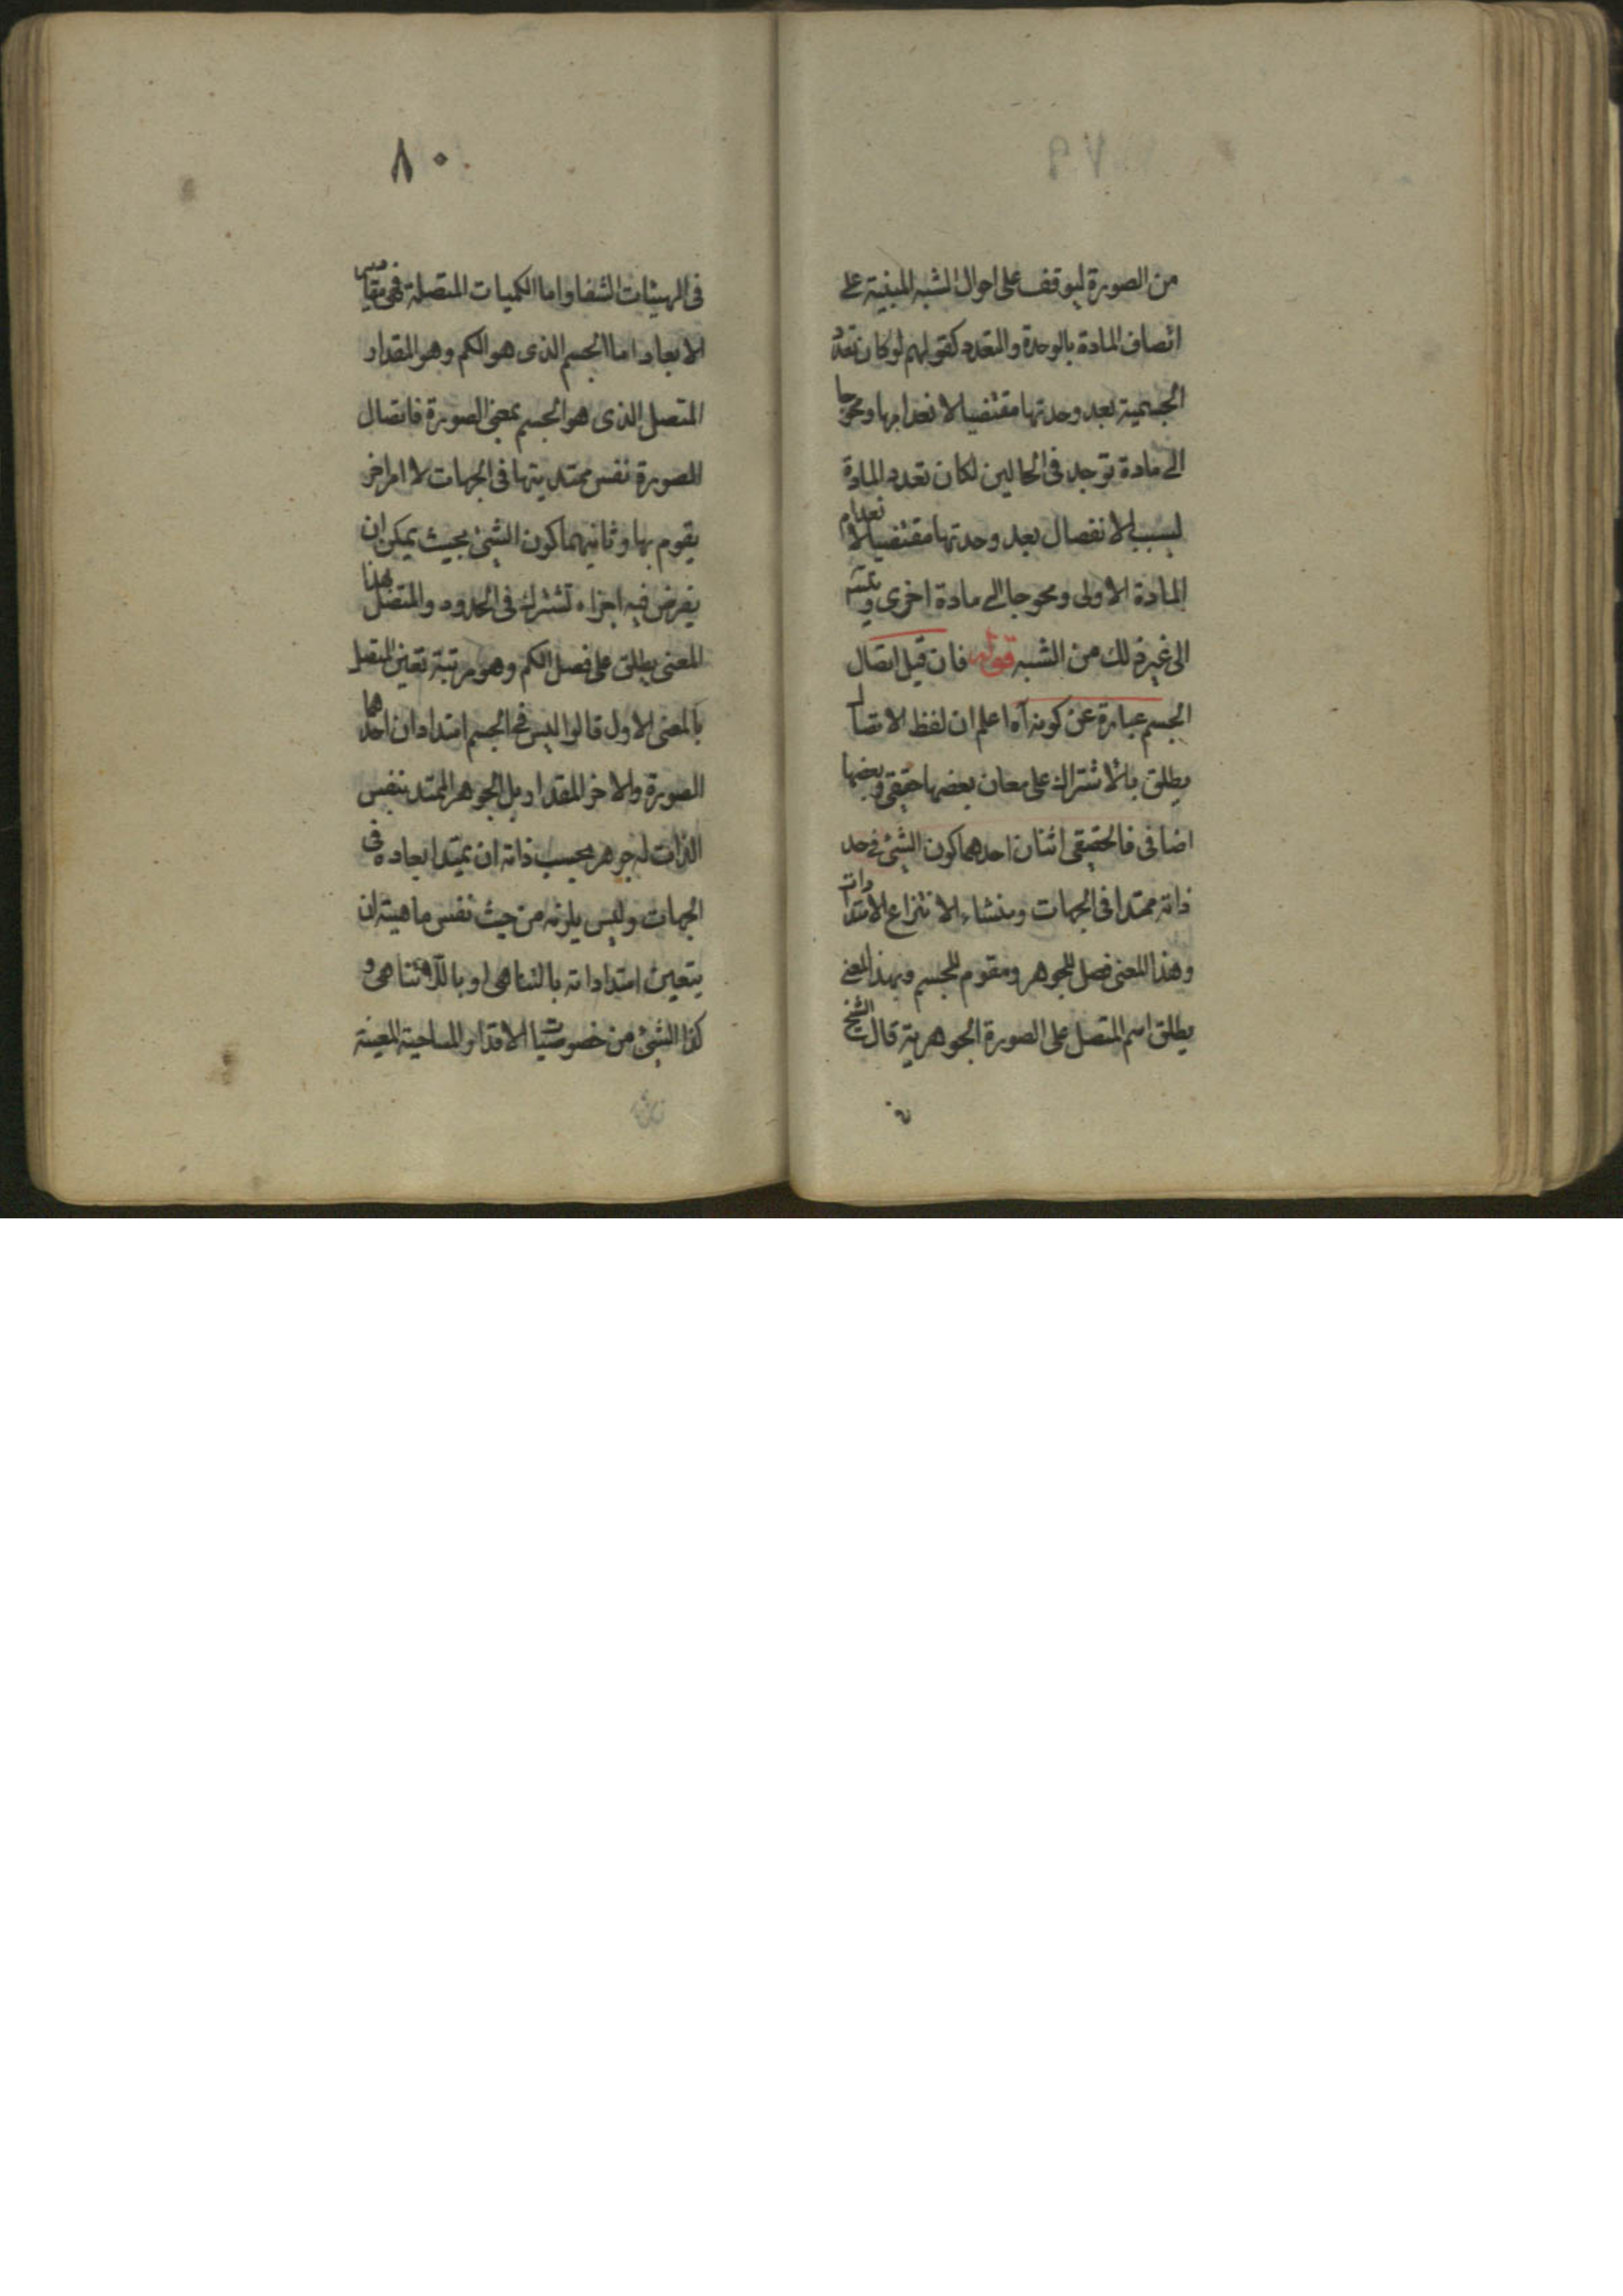 ٧٩
من الصورة ليوقف على احوال الشبه المبنية على
اتصاف المادة بالوحدة والتعدد كقولهم لوكان تعدد
الجسمية بعد وحدتها مقتضيا لانعدامها ومحوجا
الى مادة توجد فى الحالين لكان تعدد المادة
لسبب الانفصال بعد وحدتها مقتضيا لانعدام
المادة الاولى ومحوجا الى مادة اخرى و
الى غير ذلك من الشبه قوله فان قيل اتصال
الجسم عبارة عن كونه آه اعلم ان لفظ الاتصال
يطلق بالاشتراك على معان بعضها حقيقى وبعضها
اضافى فالحقيقى اثنان احدهما كون الشئ فى حد
ذاته ممتدا فى الجهات ومنشاء الانتزاع الامتدادات
وهذا المعنى فصل للجوهر ومقوم للجسم وبهذا المعنى
يطلق اسم المتصل على الصورة الجوهرية قال الشيخ
٨٠
فى الهيئات الشفا واما الكميات المتصلة فهى مقاييس
الابعاد اما الجسم الذى هو الكم وهو المقدار
المتصل الذى هو الجسم بمعنى الصورة فاتصال
الصورة نفس ممتديتها فى الجهات لا امر اخر
يقوم بها وثانيهما كون الشئ بحيث يمكن ان
يفرض فيه اجزاء تشترك فى الحدود والمتصل بهذا
المعنى يطلق على فصل الكم وهو مرتبة تعين المتصل
بالمعنى الاول قالوا ليس فى الجسم امتدادان احدهما
الصورة والاخر المقدار بل الجوهر الممتد بنفس
الذات له جوهر بحسب ذاته ان يمتد ابعاده فى
الجهات وليس يلزمه من حيث نفس ماهيته ان
يتعين امتداداته بالتناهى او باللاتناهى و
كذا الشئ من خصوصيات الاقدار المساحية المعينة